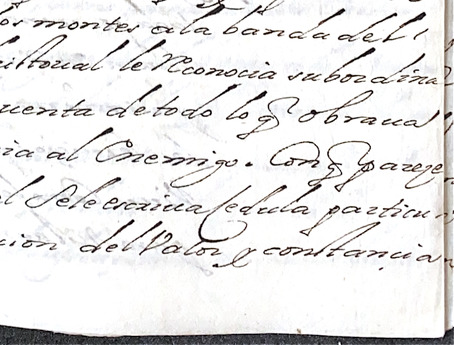 os montes a la banda del
le Reconocia subordina
uenta de todo lo q obraua
ia al Enemigo. Con q pareze
l se le escriua Cedula particu
cion del Valor y constancia